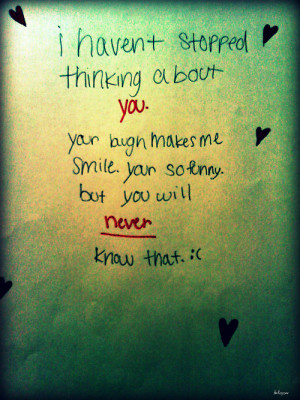 i havent stopped
thinking about
you.
your laugh makes me
smile. your so funny.
but you will
never
know that. :(